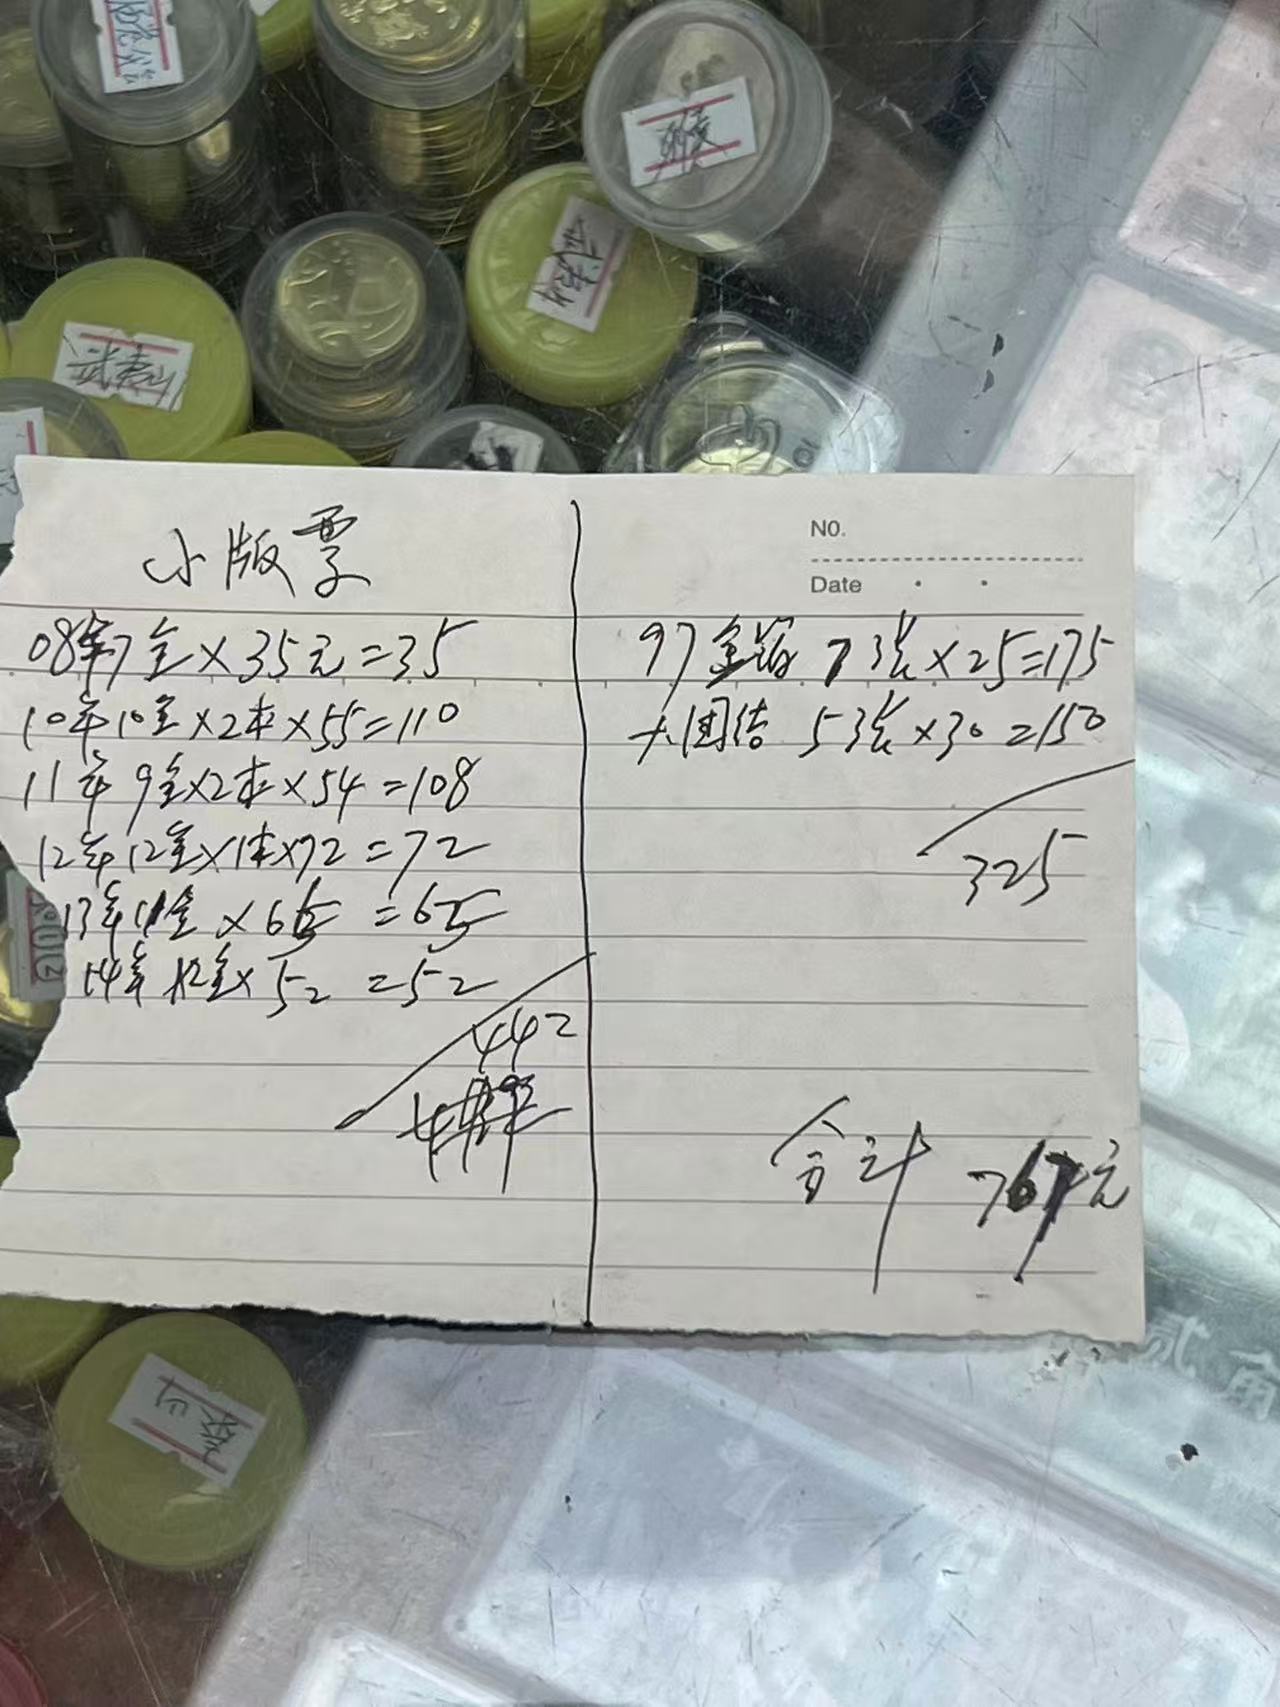 武夷山
武夷山
小版票
08年7全×35元=35
10年10全×2本×55=110
11年9全×2本×54=108
12年12全×1本×72=72
13年11全×65=65
14年12全×52=52
442
N0.
Date
97金箔 7张×25=175
大团结 5张×30=150
325
合计 767元